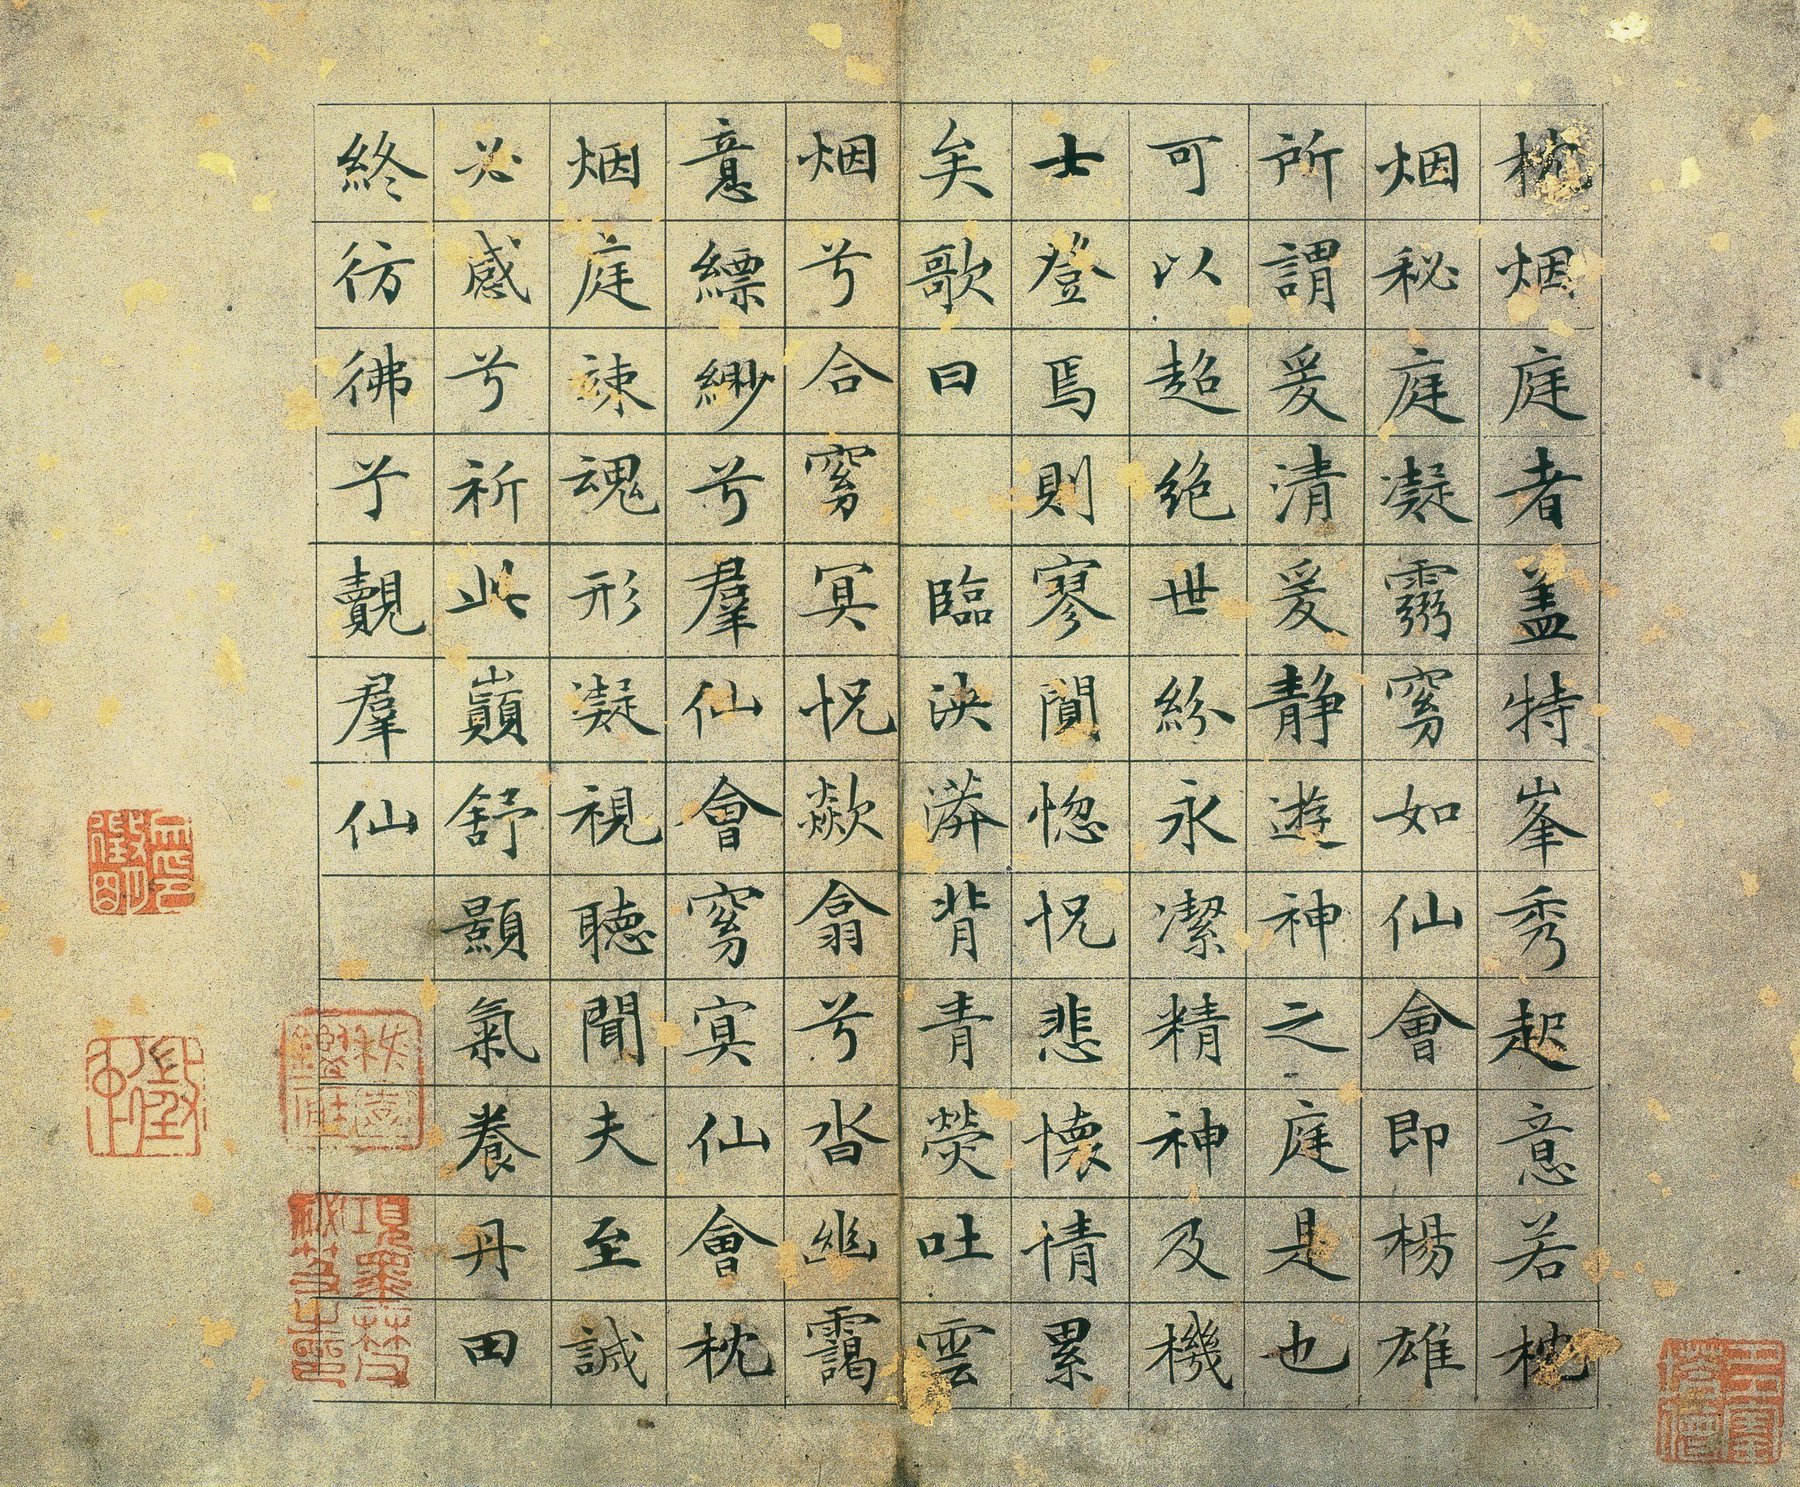 枕烟庭者盖特峯秀起意若枕
烟秘庭凝靈窈如仙會即楊雄
所謂爰清爰静遊神之庭是也
可以超絶世紛永潔精神及機
士登焉則寥閴惚怳悲懷情累
矣歌曰 臨泱漭背青熒吐雲
烟兮合窈冥怳歘翕兮沓幽靄
意縹緲兮羣仙會窈冥仙會枕
烟庭竦魂形凝視聽聞夫至誠
必感兮祈此巔舒顥氣養丹田
終彷彿兮覿羣仙